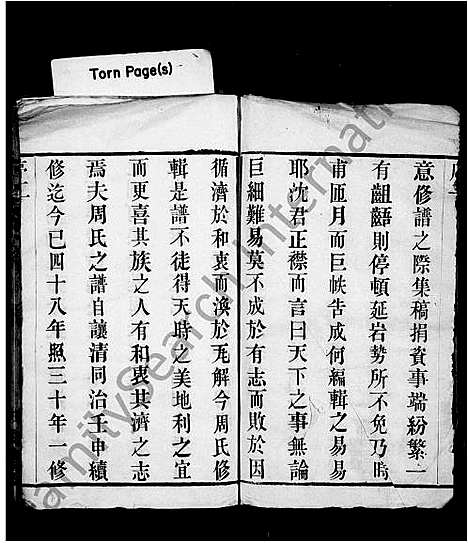 Torn Page(s)
意修譜之際集稿捐資事端紛繁一
有齟齬則停頓延宕勢所不免乃時
甫匝月而巨帙告成何編輯之易易
耶沈君正襟而言曰天下之事無論
巨細難易莫不成於有志而敗於因
循濟於和衷而渙於瓦解今周氏修
輯是譜不徒得天時之美地利之宜
而更喜其族之人有和衷共濟之志
焉夫周氏之譜自讓清同治壬申續
修迄今已四十八年照三十年一修